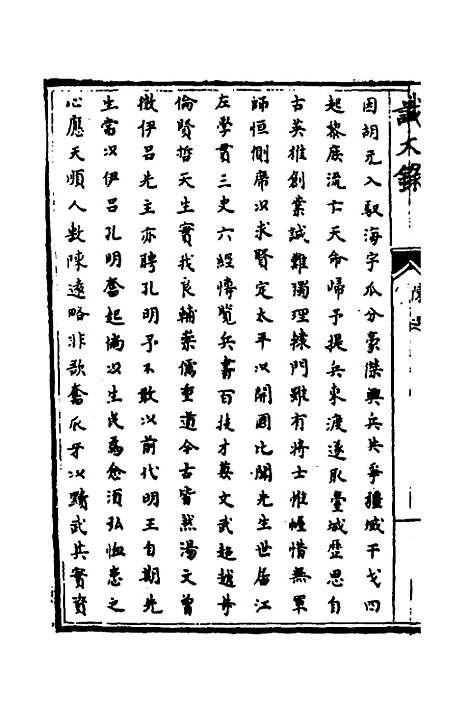 識大錄
因胡元入馭海宇瓜分豪傑興兵共爭疆域干戈四
起黎庶流亡天命歸予提兵東渡遂取臺城歷思自
古英雄創業誠難獨理轅門雖有將士惟幄惜無軍
師恒側席以求賢定太平以開國比聞先生世居江
左學貫三史六經博覽兵書百技才兼文武超越等
倫賢哲天生實我良輔業儒重道今古皆然湯文曾
徵伊呂先主亦聘孔明予不敢以前代明王自期先
生當以伊呂孔明奮起倘以生民為念須弘恤患之
心應天順人敷陳遠略非欲奮爪牙以黷武共實資